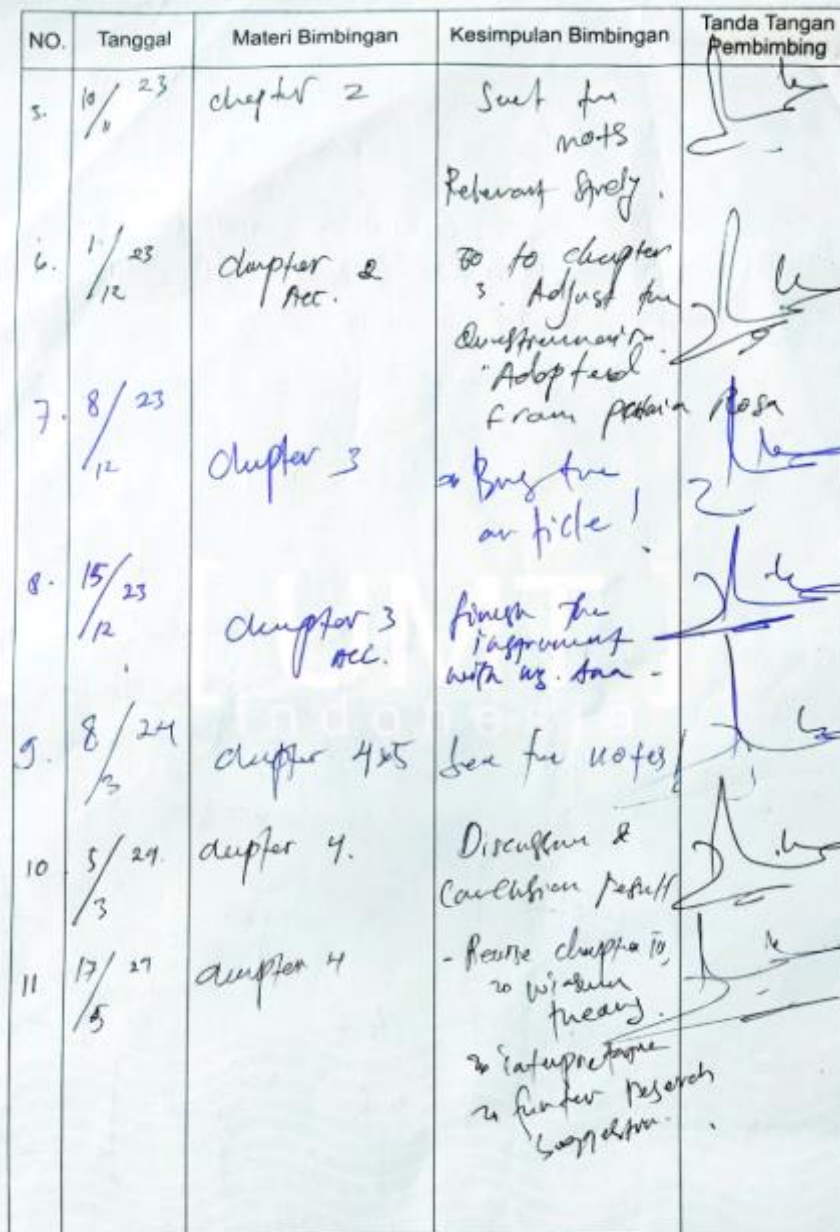 NO. Tanggal Materi Bimbingan Kesimpulan Bimbingan Tanda Tangan Pembimbing
5. 10/11 23 chapter 2
nots
Relevant Study.
6. 1/12 23 chapter 2 Acc. Go to chapter
3. Adjust the
Questionnaire.
"Adopted
from Rosa
7. 8/12 23 chapter 3 the
article!
8. 15/12 23 chapter 3 Acc. finish the
instrument
with
9. 8/3 24 chapter 4&5 See the notes!
10 5/3 24. chapter 4. Discussion &
Conclusion result
11 17/5 24 chapter 4 - Revise chapter
theory.
interpretation
further research
suggestion.
[UMT]
Indonesia